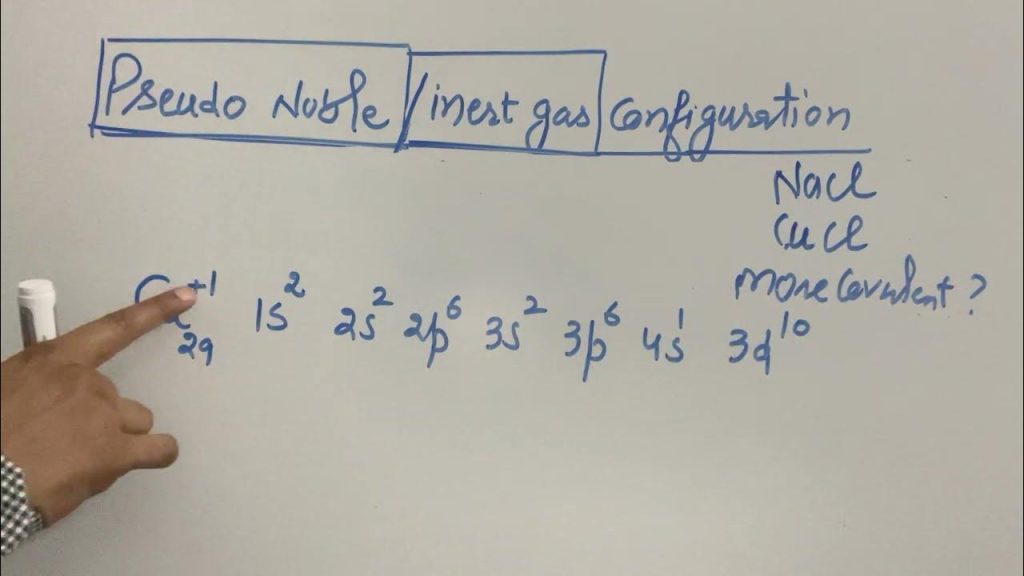 Pseudo Noble/inert gas Configuration
NaCl
CuCl
more Covalent ?
Cu+1 1s² 2s² 2p⁶ 3s² 3p⁶ 4s¹ 3d¹⁰
29